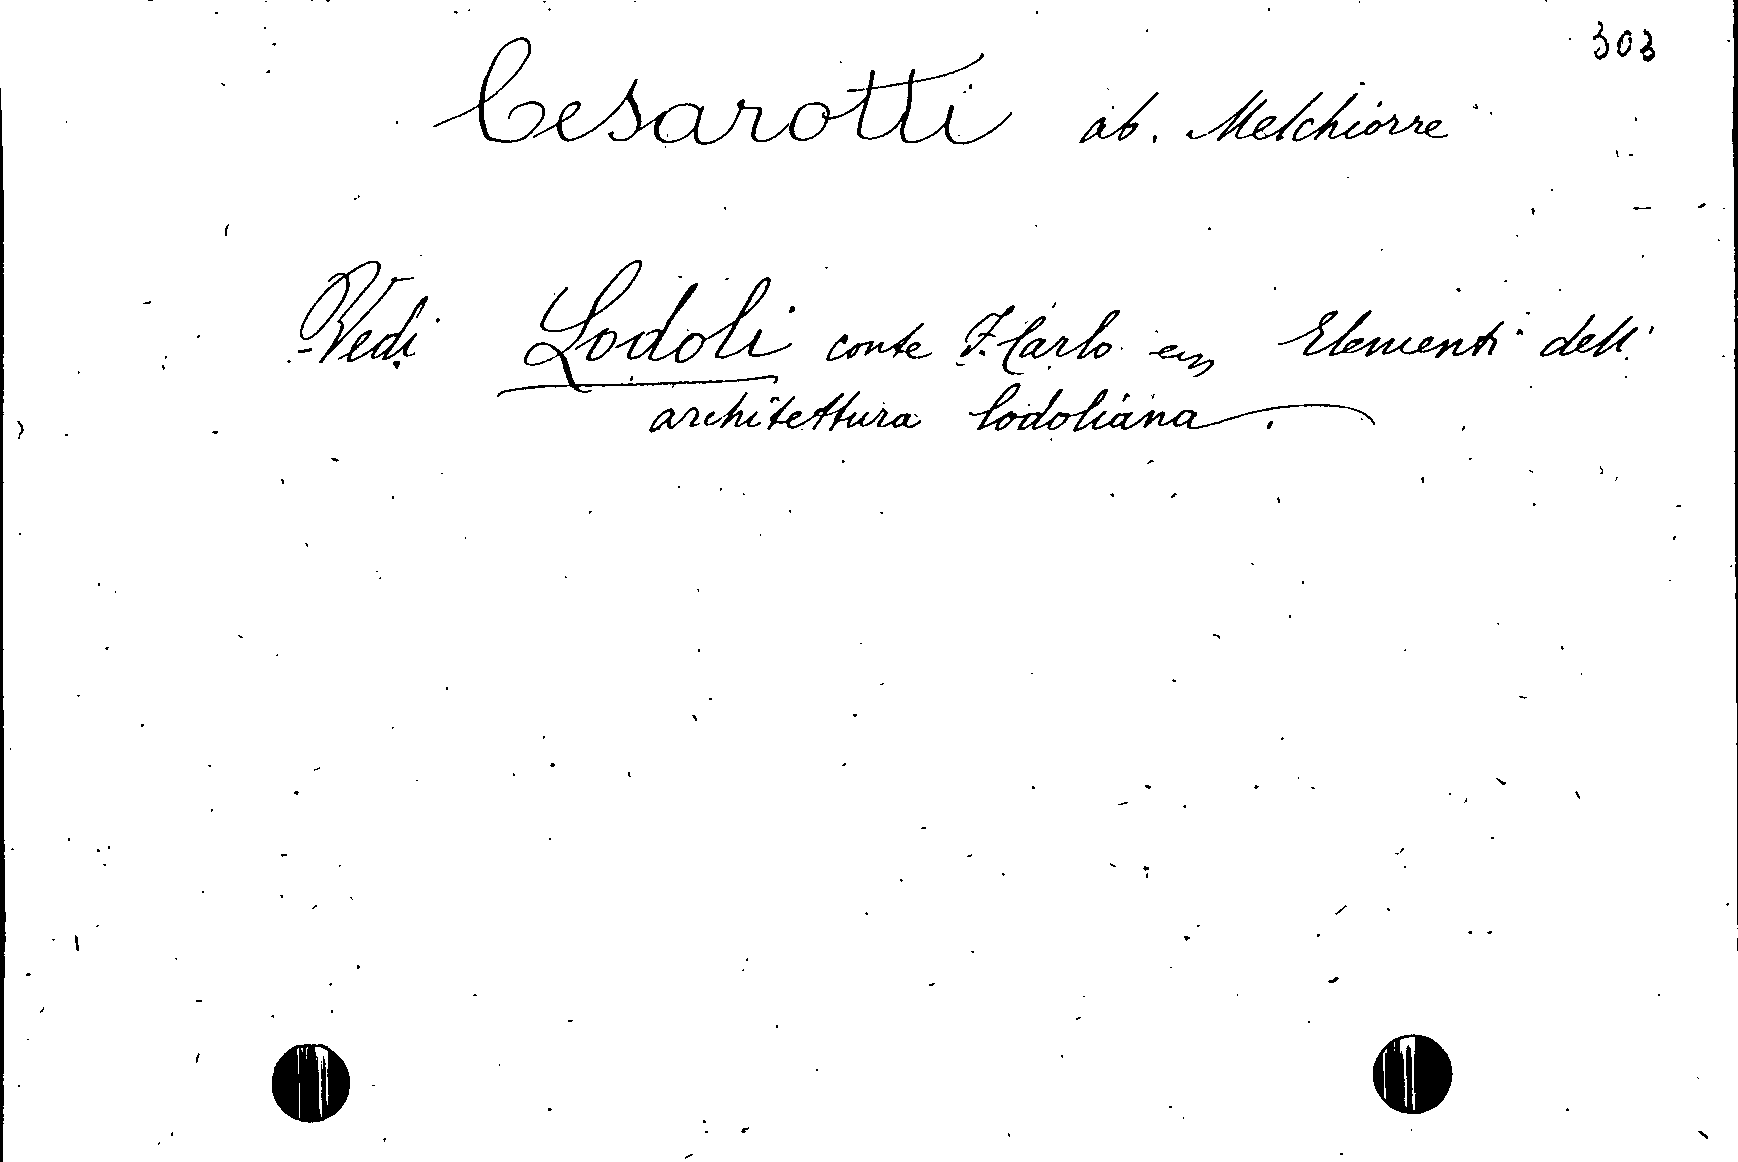 303
Cesarotti ab. Melchiorre
Vedi Lodoli conte F. Carlo Elementi dell'
architettura lodoliana.